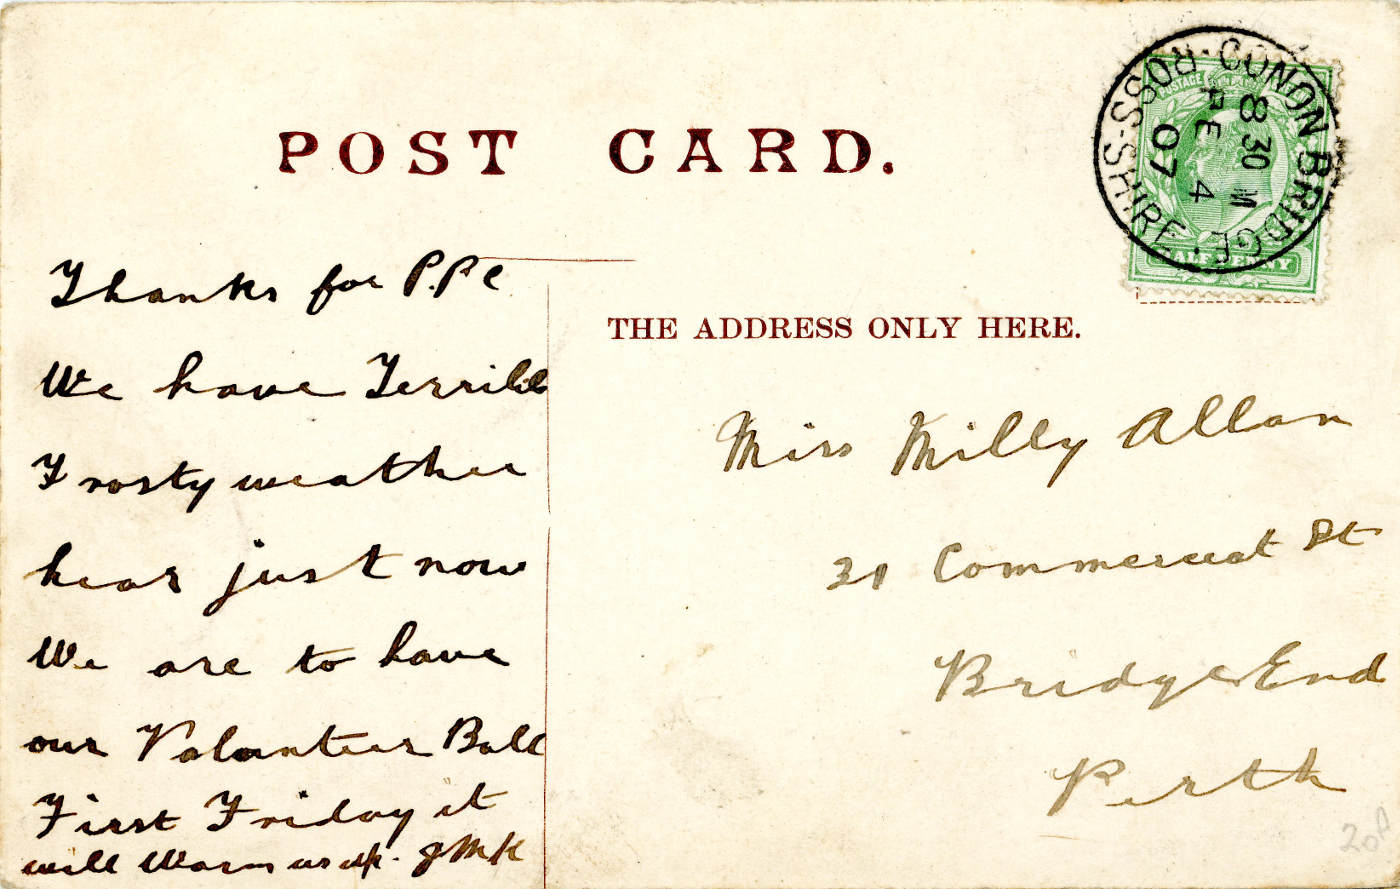 POST CARD.
CONON BRIDGE · ROSS-SHIRE ·
8 30 M
FE 4
07
POSTAGE
HALFPENNY
Thanks for P.P.C
We have Terrible
Frosty weather
hear just now
We are to have
our Volunteer Ball
First Friday it
will Warm us up. J McK
THE ADDRESS ONLY HERE.
Miss Milly Allan
31 Commercial St
Bridge End
Perth